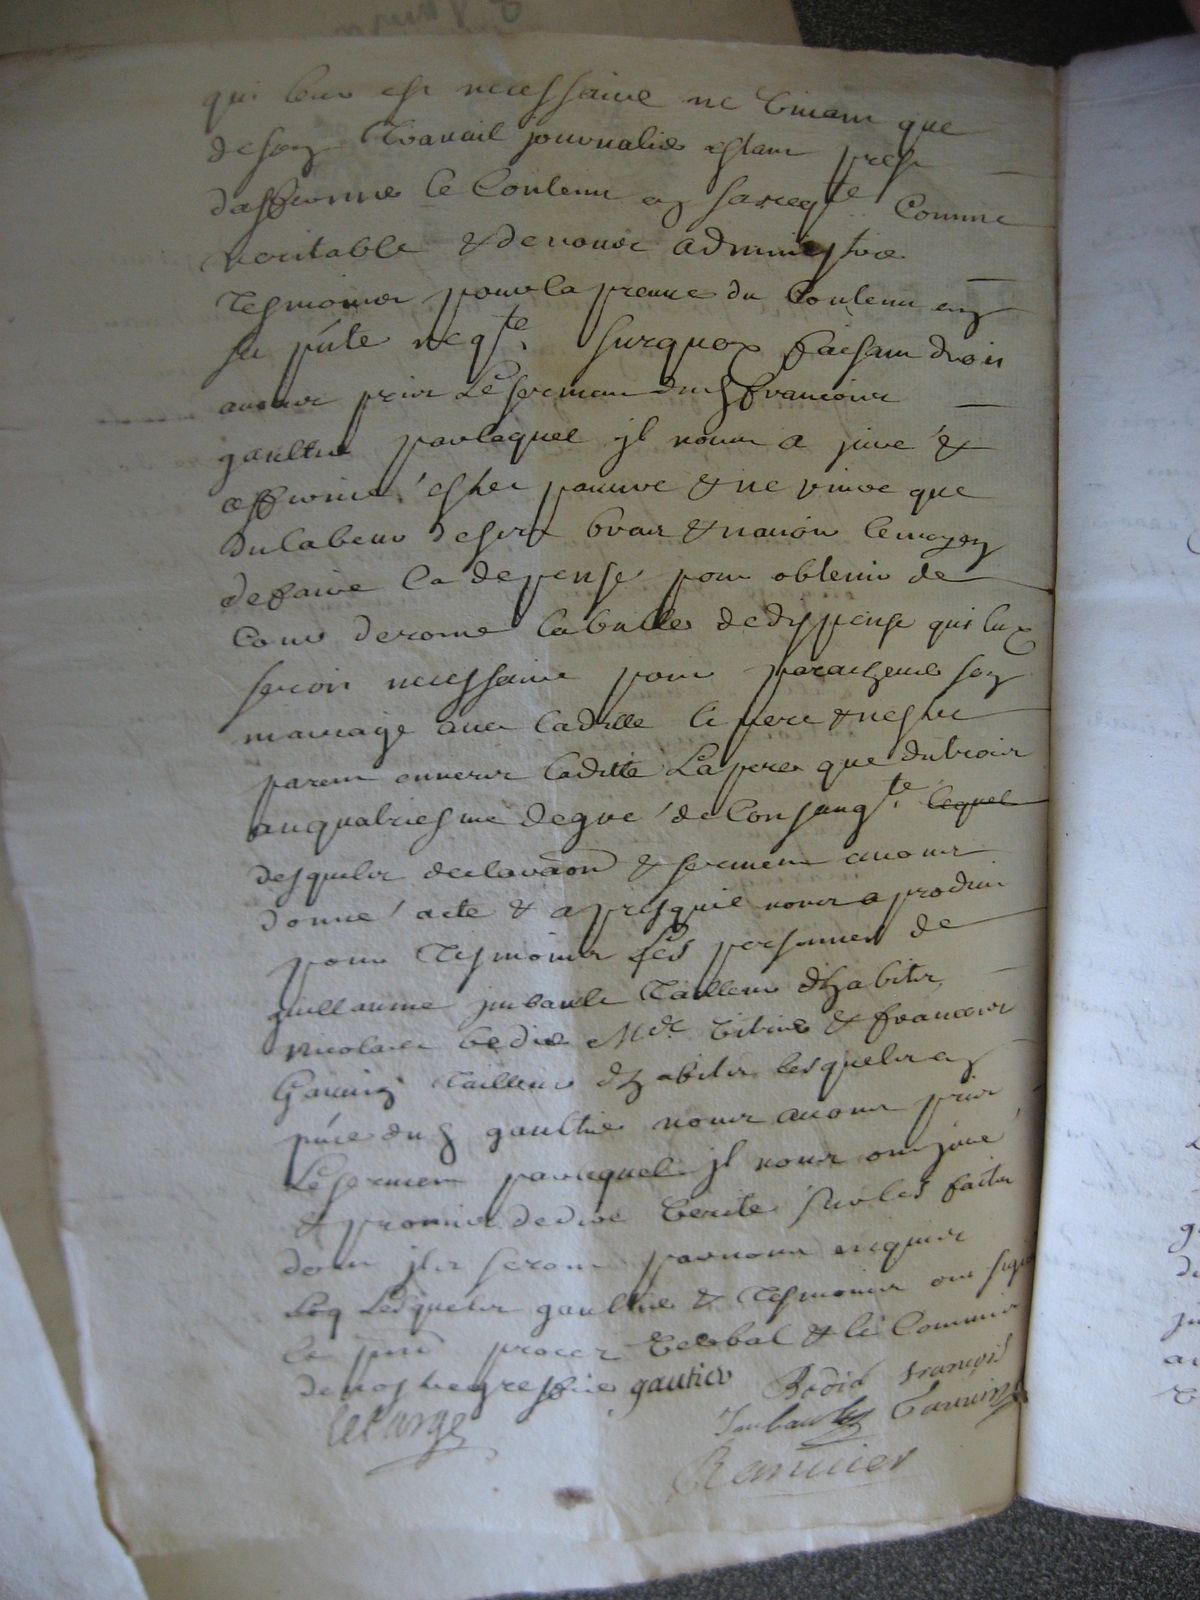 qui leur est necessaire ne vivant que
de son travail journalier estant prest
d'affirmer le contenu en sa reqte comme
veritable & de nous administrer
tesmoins pour la preuve du contenu en
sa pnte reqte. Surquoy faisant droit
avons pris le serment dud francois
gaultier par lequel il nous a juré &
affirmé estre pauvre & ne vivre que
du labeur de ses bras & n'avoir le moyen
de faire la depense pour obtenir de
cour de rome la bulle de dispense qui luy
seroit necessaire pour parachever son
mariage avec ladille le pere & n'estre
parent envers ladite Lapere que du trois
au quatriesme degré de consangte. lequel
desquelles declaraon & serment avons
donné acte & apres quil nous a produit
pour tesmoins les personnes de
guillaume imbault tailleur d'habits,
nicolas bedié Md. vitrier & francois
Gavini tailleur d'habits lesquels en
pnce dud gaultier nous avons pris
le serment par lequel il nous ont juré
& promis de dire verité sur les faits
dont ils seront par nous enquis
Lesquels gaultier & tesmoins ont signé
le pnt proces verbal & le commis
de nostre greffier gautier Bedié françois
lelarge Imbault Gavini
Ranvier